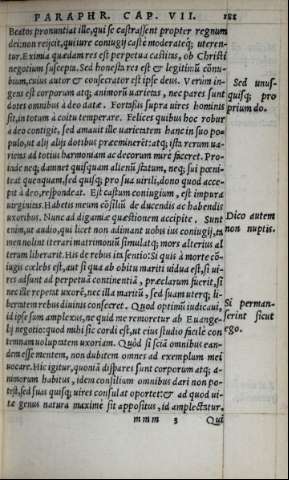 PARAPHR. CAP. VII. 181
Beatos pronuntiat ille, qui se castrassent propter regnum
dei: non reijcit, qui iure coniugij caste moderateq; uteren-
tur. Eximia quædam res est perpetua castitas, ob Christi
negotium suscepta. Sed honesta res est & legitimũ cõnu-
bium, cuius autor & consecrator est ipse deus. Verum in-
gens est corporum atq; animorũ uarietas, nec pares sunt
dotes omnibus à deo datæ. Fortassis supra uires hominis
sit, in totum à coitu temperare. Felices quibus hoc robur
à deo contigit, sed amauit ille uarietatem hanc in suo po-
pulo, ut alij alijs dotibus præeminerēt: atq; ista rerum ua-
rietas ad totius harmoniam ac decorum mire faceret. Pro-
inde neq; damnet quisquam alienũ statum, neq; sui pœni-
teat quenquam, sed quisq; pro sua uirili, dono quod acce-
pit à deo, respondeat. Est castum coniugium, est impura
uirginitas. Habetis meum cõsiliũ de ducendis ac habendis
uxoribus. Nunc ad digamiæ quæstionem accipite. Sunt
enim, ut audio, qui licet non adimant uobis ius coniugij, ta
men nolint iterari matrimoniũ simulatq; mors alterius al
terum liberarit. His de rebus ita sentio: Si quis à morte cõ-
iugis cœlebs est, aut si qua ab obitu mariti uidua est, si ui-
res adsunt ad perpetuã continentiã, præclarum fuerit, si
nec ille repetat uxorē, nec illa maritũ, sed suam uterq; li-
bertatem rebus diuinis consecret. Quod optimũ iudicaui,
id ipse sum amplexus, ne quid me remoretur ab Euange-
lij negotio: quod mihi sic cordi est, ut eius studio facile con
temnam uoluptatem uxoriam. Quòd si sciã omnibus ean-
dem esse mentem, non dubitem omnes ad exemplum mei
uocare. Hic igitur, quoniã dispares sunt corporum atq; a-
nimorum habitus, idem consilium omnibus dari non po-
test, sed suas quisq; uires consulat oportet: & ad quod ui-
tæ genus natura maxime sit appositus, id amplectatur.
mmm 3 Qui
Sed unus-
quisq; pro
prium do.
Dico autem
non nuptis.
Si perman-
serint sicut
ego.